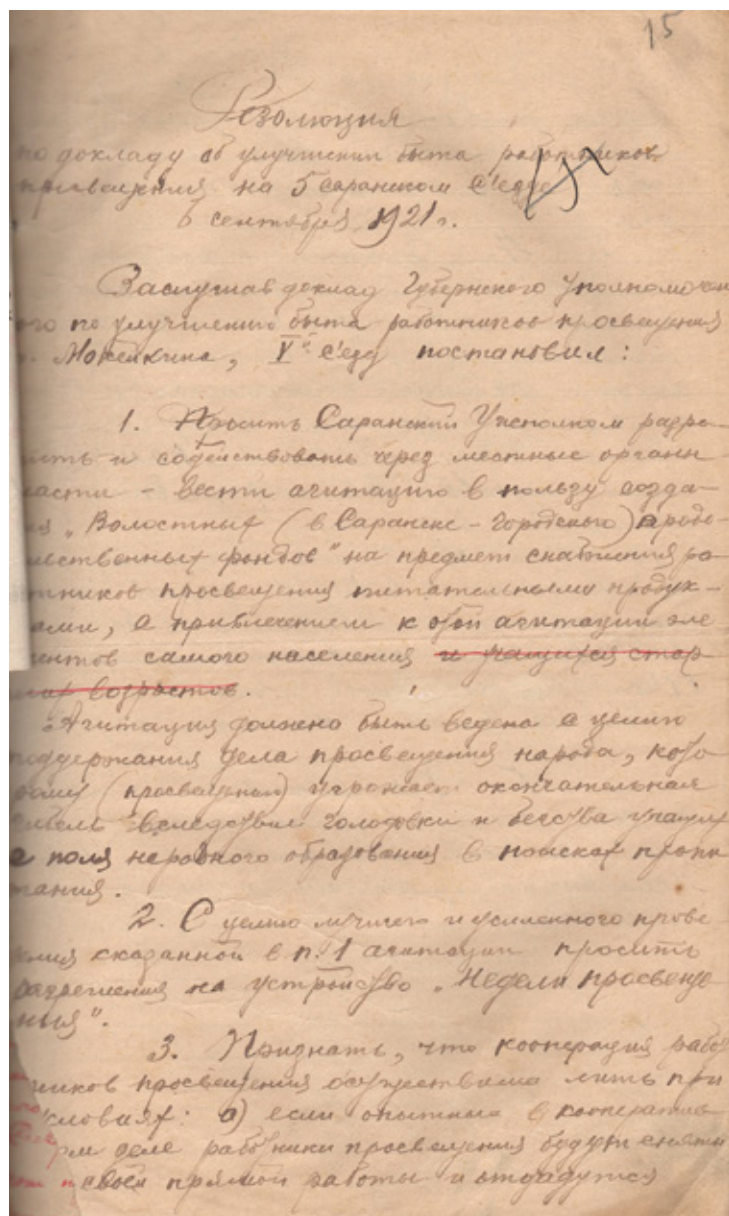 15
Резолюция
по докладу об улучшении быта работников
просвещения на 5 Саранском С'езде
6 сентября 1921 г.
Заслушав доклад Губернского Уполномочен
ого по улучшению быта работников просвещения
Мокеикина, V й С'езд постановил:
1. Просить Саранский Уисполком разре-
шить и содействовать через местные органы
власти - вести агитацию в пользу созда-
ия „Волостных (в Саранске - Городского) продо-
льственных фондов" на предмет снабжения ра-
тников просвещения питательными продук-
ами, с привлечением к этой агитации эле
ентов самого населения и учащихся стар-
ших возрастов.
Агитация должна быть ведена с целью
поддержания дела просвещения народа, кото
рому (просвещению) угрожает окончательная
гибель вследствие голодовки и бегства учащих
с поля народного образования в поисках пропи
тания.
2. С целью лучшего и усиленного прове
ения сказанной в п. 1 агитации просить
разрешения на устройство „Недели просвеще
ния".
3. Признать, что кооперация рабо
тников просвещения осуществима лишь при
словиях: а) если опытные в кооператив
ом деле работники просвещения будут сняты
со своей прямой работы и отдадутся